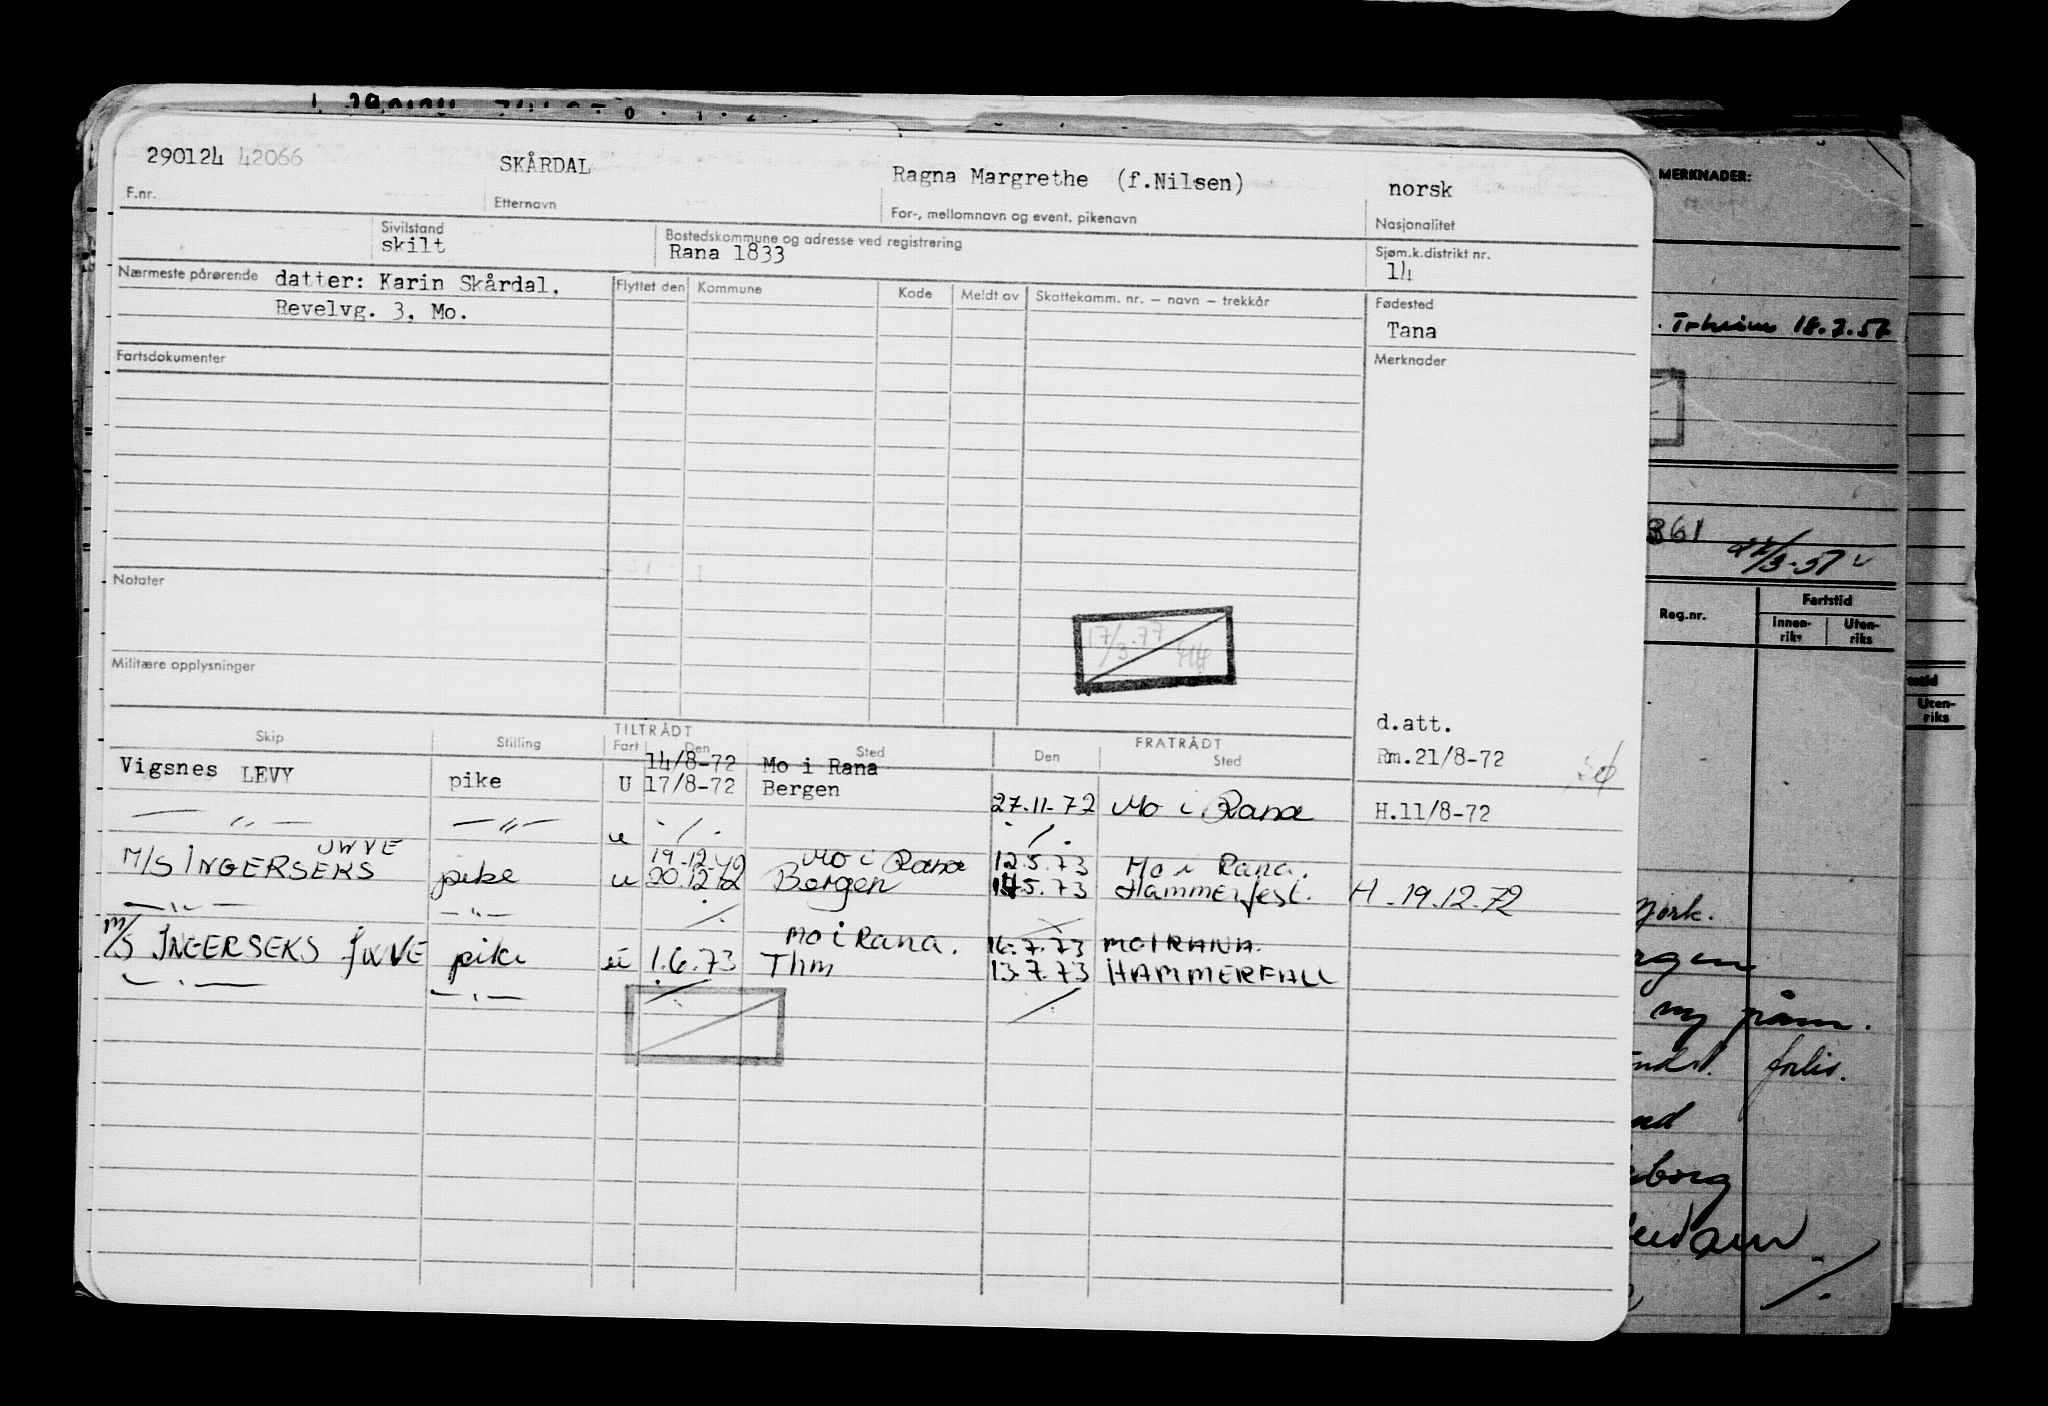 290124 42066 SKÅRDAL Ragna Margrethe (f.Nilsen) norsk
F.nr. Etternavn For-, mellomnavn og event. pikenavn Nasjonalitet
Sivilstand Bostedskommune og adresse ved registrering Sjøm.k.distrikt nr.
skilt Rana 1833 14
Nærmeste pårørende datter: Karin Skårdal, Flyttet den Kommune Kode Meldt av Skattekomm. nr. – navn – trekkår Fødested
Revelvg. 3, Mo. Tana
Fartsdokumenter Merknader
Notater
17/3-77
Militære opplysninger
d.att.
TILTRÅDT FRATRÅDT
Skip Stilling Fart Den Sted Den Sted
14/8-72 Mo i Rana Rm.21/8-72
Vigsnes LEVY pike U 17/8-72 Bergen
27.11.72 Mo i Rana H.11/8-72
— „ — — „ — u
JWVE 19.12.72 Mo i Rana 12.5.73 Mo i Rana.
M/S INGERSEKS pike u 20.12.72 Bergen 5.73 Hammerfest. H. 19.12.72
— „ — — „ —
Mo i Rana. 16.7.73 MO I RANA.
M/S INGERSEKS pike u 1.6.73 Thm 13.7.73 HAMMERFALL
— „ — — „ —
MERKNADER:
18.3.57
861
Reg.nr. Fartstid
Innen-riks Uten-riks
Uten-riks
ny
forlis.